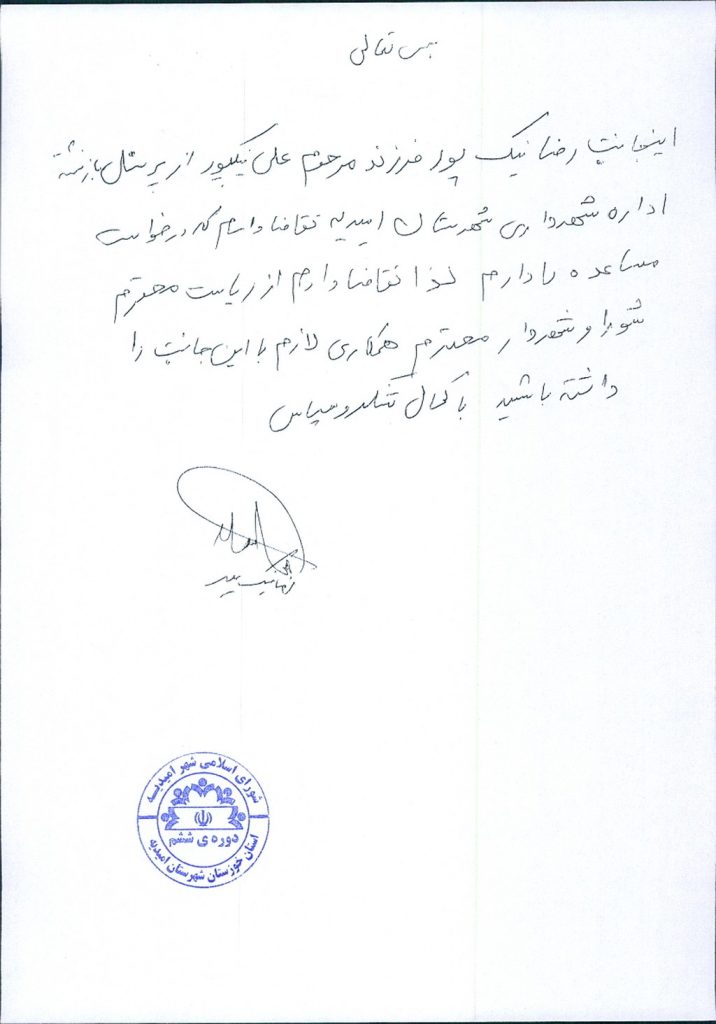 بسمه تعالی
اینجانب رضا نیک پور فرزند مرحوم علی نیکپور از پرسنل بازنشسته
اداره شهرداری شهرستان امیدیه تقاضا دارم که درخواست
مساعده را دارم لذا تقاضا دارم از ریاست محترم
شورا و شهردار محترم همکاری لازم با این جانب را
داشته باشید با کمال تشکر و سپاس
رضا نیک پور
شورای اسلامی شهر امیدیه
دوره ی ششم
استان خوزستان شهرستان امیدیه